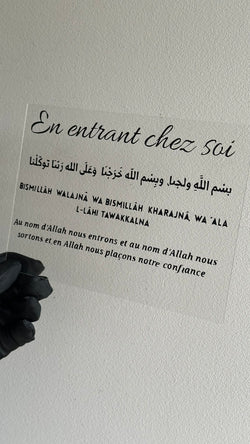 En entrant chez soi
بِسْمِ اللَّهِ وَلَجْنَا، وَبِسْمِ اللَّهِ خَرَجْنَا وَعَلَى اللهِ رَبِّنَا تَوَكَّلْنَا
BISMILLÂH WALAJNÂ WA BISMILLÂH KHARAJNÂ, WA 'ALA
L-LÂHI TAWAKKALNA
Au nom d'Allah nous entrons et au nom d'Allah nous
sortons et en Allah nous plaçons notre confiance